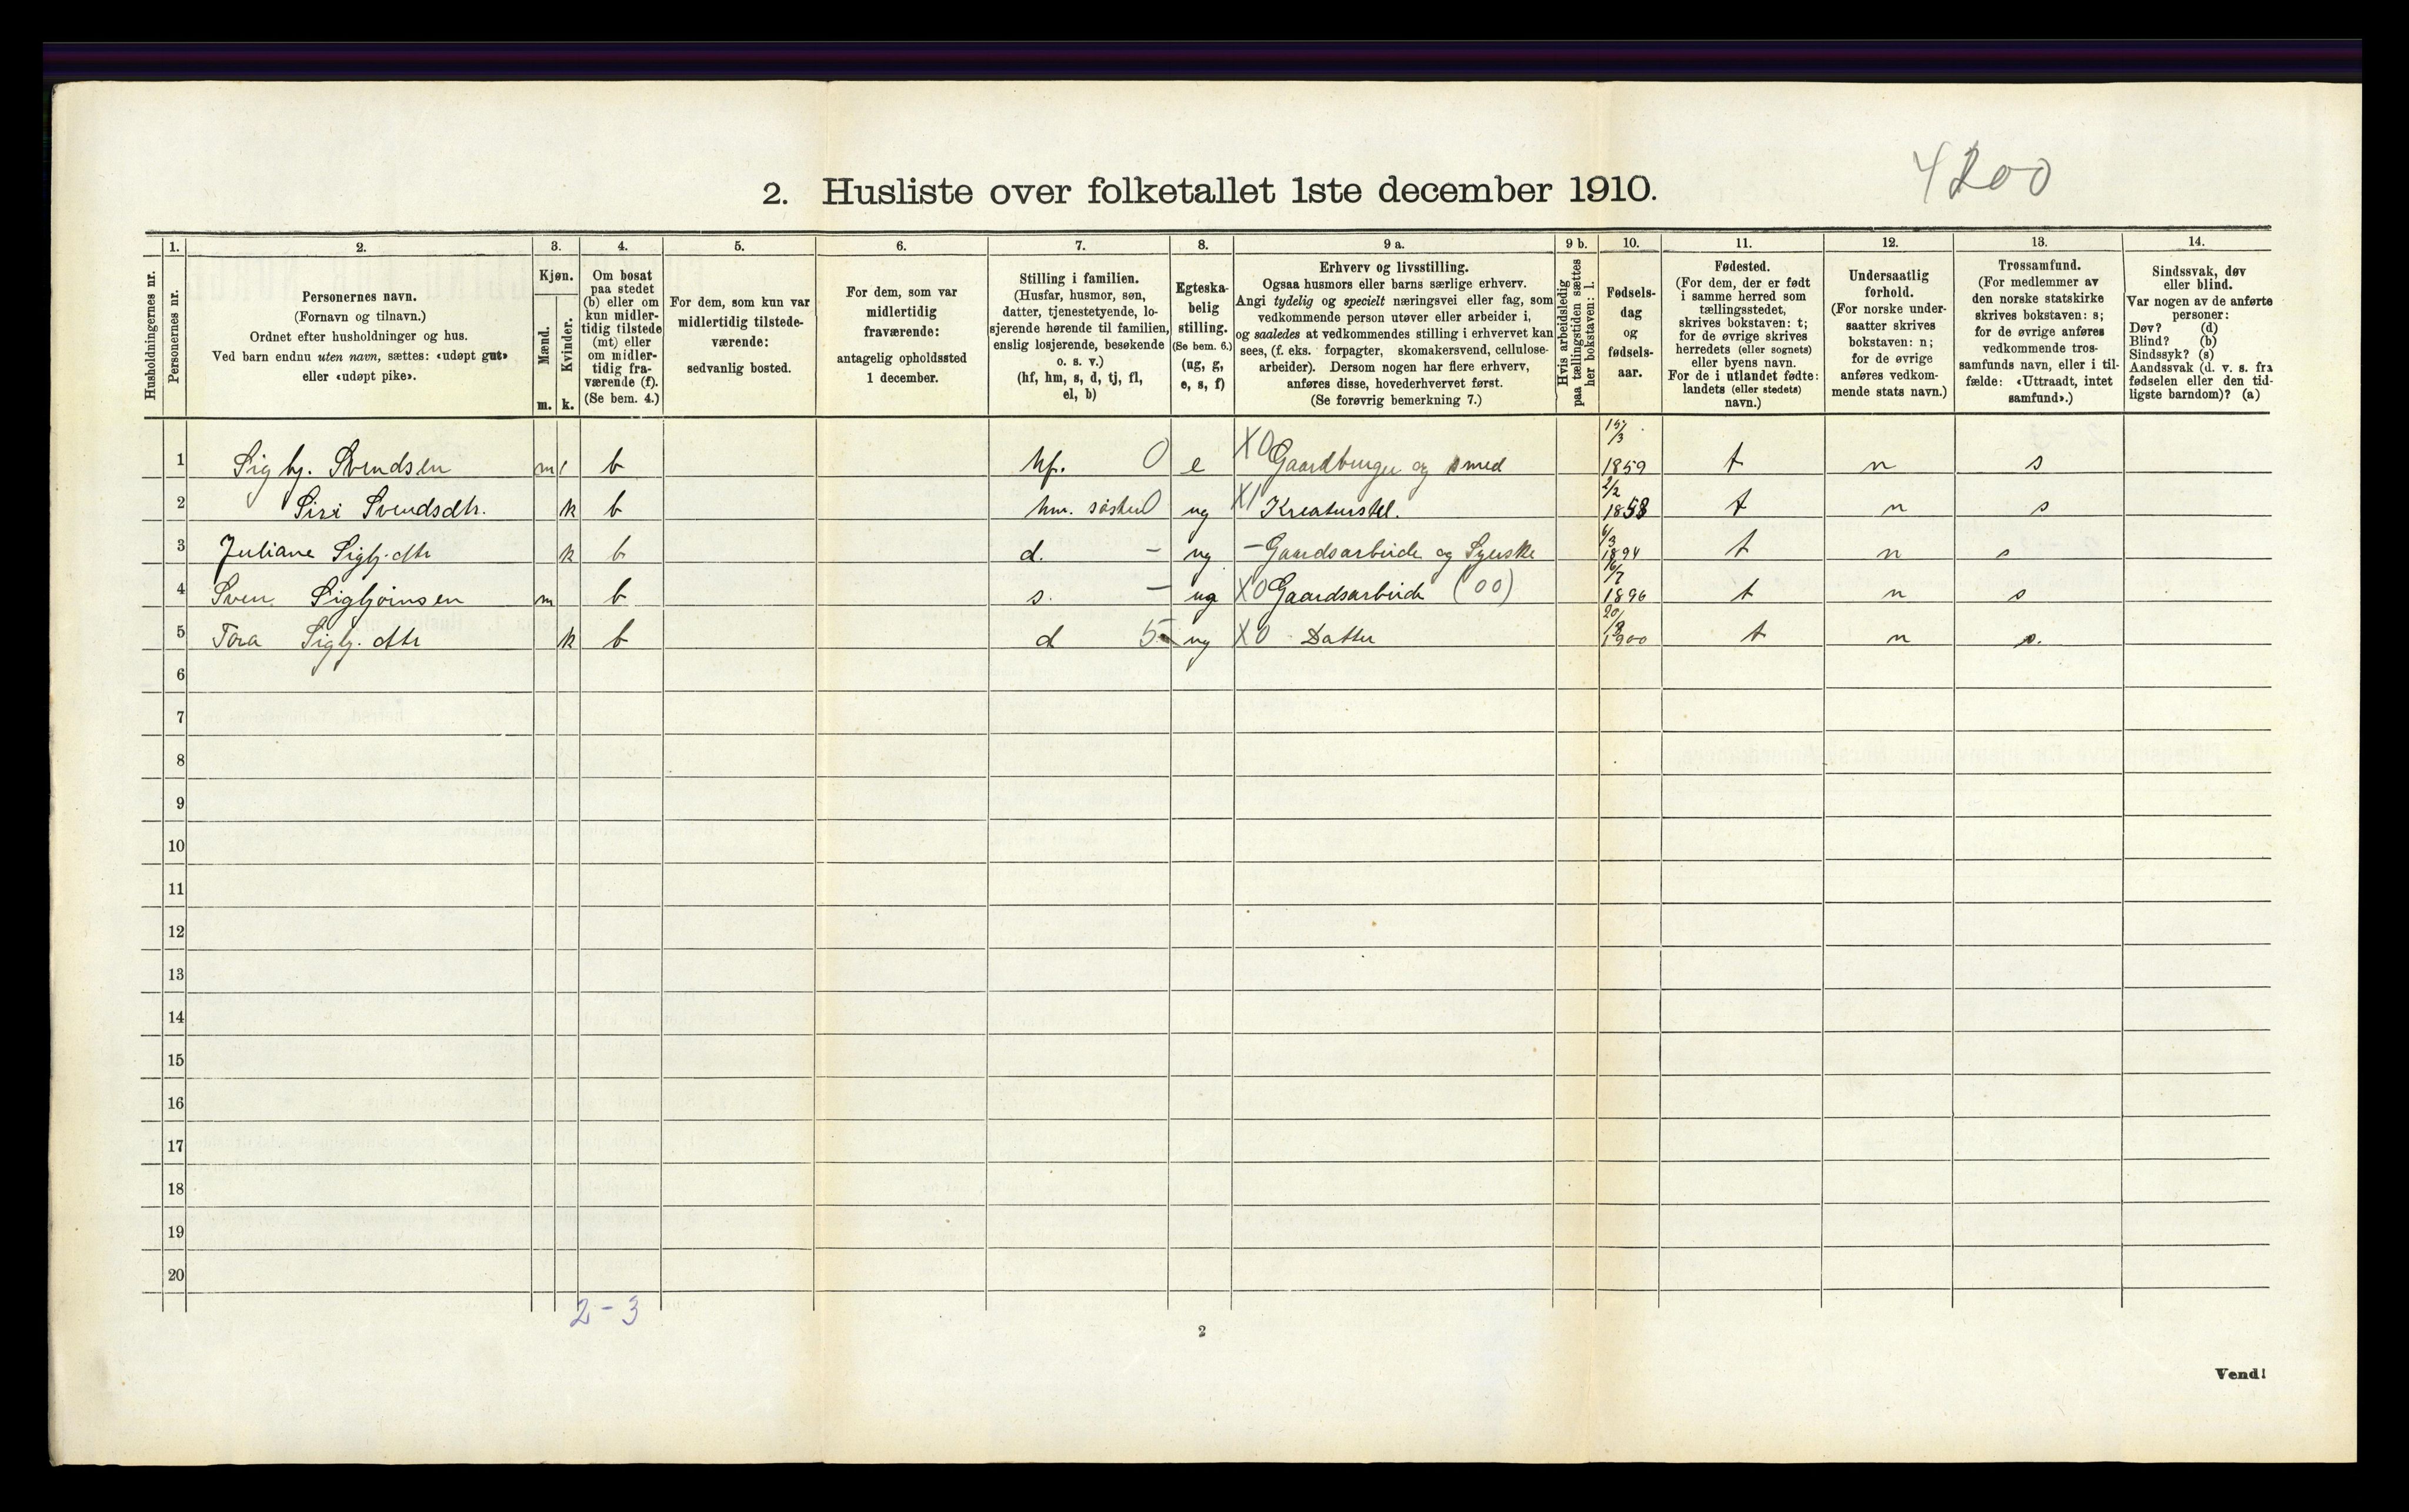 4200
2. Husliste over folketallet 1ste december 1910.
1. 2. 3. 4. 5. 6. 7. 8. 9 a. 9 b. 10. 11. 12. 13. 14.
Husholdningernes nr.
Personernes nr.
Personernes navn.
(Fornavn og tilnavn.)
Ordnet efter husholdninger og hus.
Ved barn endnu uten navn, sættes: «udøpt gut»
eller «udøpt pike».
Kjøn.
Mænd.
Kvinder.
m. k.
Om bosat
paa stedet
(b) eller om
kun midler-
tidig tilstede
(mt) eller
om midler-
tidig fra-
værende (f).
(Se bem. 4.)
For dem, som kun var
midlertidig tilstede-
værende:
sedvanlig bosted.
For dem, som var
midlertidig
fraværende:
antagelig opholdssted
1 december.
Stilling i familien.
(Husfar, husmor, søn,
datter, tjenestetyende, lo-
sjerende hørende til familien,
enslig losjerende, besøkende
o. s. v.)
(hf, hm, s, d, tj, fl,
el, b)
Egteska-
belig
stilling.
(Se bem. 6.)
(ug, g,
e, s, f)
Erhverv og livsstilling.
Ogsaa husmors eller barns særlige erhverv.
Angi tydelig og specielt næringsvei eller fag, som
vedkommende person utøver eller arbeider i,
og saaledes at vedkommendes stilling i erhvervet kan
sees, (f. eks. forpagter, skomakersvend, cellulose-
arbeider). Dersom nogen har flere erhverv,
anføres disse, hovederhvervet først.
(Se forøvrig bemerkning 7.)
Hvis arbeidsledig
paa tællingstiden sættes
her bokstaven: l.
Fødsels-
dag
og
fødsels-
aar.
Fødested.
(For dem, der er født
i samme herred som
tællingsstedet,
skrives bokstaven: t;
for de øvrige skrives
herredets (eller sognets)
eller byens navn.
For de i utlandet fødte:
landets (eller stedets)
navn.)
Undersaatlig
forhold.
(For norske under-
saatter skrives
bokstaven: n;
for de øvrige
anføres vedkom-
mende stats navn.)
Trossamfund.
(For medlemmer av
den norske statskirke
skrives bokstaven: s;
for de øvrige anføres
vedkommende tros-
samfunds navn, eller i til-
fælde: «Uttraadt, intet
samfund».)
Sindssvak, døv
eller blind.
Var nogen av de anførte
personer:
Døv? (d)
Blind? (b)
Sindssyk? (s)
Aandssvak (d. v. s. fra
fødselen eller den tid-
ligste barndom)? (a)
1 Sigbj. Svendsen m b hf. 0 e X0 Gaardbruger og smed 1859 t n s
2 Siri Svendsdtr. k b hm. søster 0 ug X1 Kreaturstel. 2/2 1858 t n s
3 Juliane Sigbj.dtr k b d. - ug - Gaardsarbeide og Syerske 6/3 1894 t n s
4 Sven Sigbjørnsen m b s. - ug X0 Gaardsarbeide (00) 16/7 1896 t n s
5 Tora Sigbj.dtr k b d 5 ug X0 Datter 1900 t n s.
6
7
8
9
10
11
12
13
14
15
16
17
18
19
20
2-3
2
Vend!